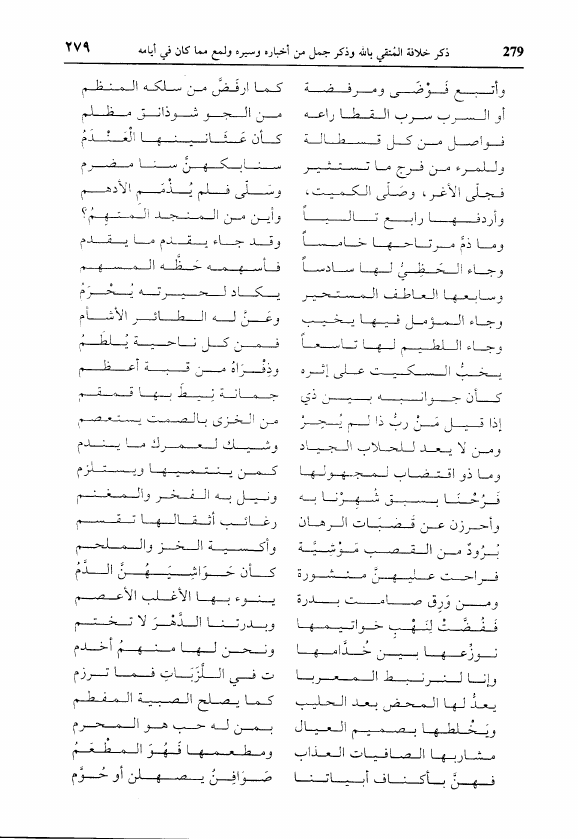 279 ذكر خلافة المُتقي بالله وذكر جمل من أخباره وسيره ولمع مما كان في أيامه ٢٧٩
وأتبع فَوْضَى ومرفضة كما ارفَضَّ من سلكه المنظم
أو السرب سرب القطا راعه من الجو شوذانق مظلم
فواصل من كل قسطالة كأن عَثَانينها الْعَنْدَمُ
وللمرء من فرج ما تستثير سنابكهنَّ سنا مضرم
فجلّى الأغر، وصَلّى الكميت، وسَلَّى فلم يُذْمَمِ الأدهم
وأردفها رابع تالياً وأين من المنجد المتهِمُ؟
وما ذمَّ مرتاحها خامساً وقد جاء يقدم ما يقدم
وجاء الحَظِيُّ لها سادساً فأسهمه حَظَّه المسهم
وسابعها العاطف المستحير يكاد لحيرته يُحْرَمُ
وجاء المؤمل فيها يخيب وعَنَّ له الطائر الأشأم
وجاء اللطيم لها تاسعاً فمن كل ناحية يُلطَمُ
يخبُّ السكيت على إثره وذِفْرَاهُ من قبة أعظم
كأن جوانبه بين ذي جمانة نِيطَ بها قمقم
إذا قيل مَنْ رَبُّ ذا لم يُجِرْ من الخزى بالصمت يستعصم
ومن لا يعد للحلاب الجياد وشيك لعمرك ما يندم
وما ذو اقتضاب لمجهولها كمن ينتميها ويستلزم
فَرُحْنَا بسبق شُهِرْنا به ونيل به الفخر والمغنم
وأحرزن عن قَصَبَات الرهان رغائب أثقالها تقسم
بُرُودٌ من القصب مَوْشِيَّة وأكسية الخز والملحم
فراحت عليهنَّ منشورة كأن حَوَاشِيَهُنَّ الدَّمُ
ومن وَرِق صامت بدرة ينوء بها الأغلب الأعصم
فَفُضَّتْ لِنَهْبٍ خواتيمها وبدرتنا الدَّهْرَ لا تختم
نوزعها بين خُدَّامها ونحن لها منهمُ أخدم
وإنا لنرتبط المعربا ت في اللَّزَبَاتِ فما ترزم
يعدُّ لها المحض بعد الحليب كما يصلح الصبية المفطم
ويَخْلطها بصميم العيال بمن له حب هو المحرم
مشاربها الصافيات العذاب ومطعمها فَهْوَ المطْعَمُ
فهنَّ بأكناف أبياتنا صَوَافِنُ يصهلن أو حُوَّم